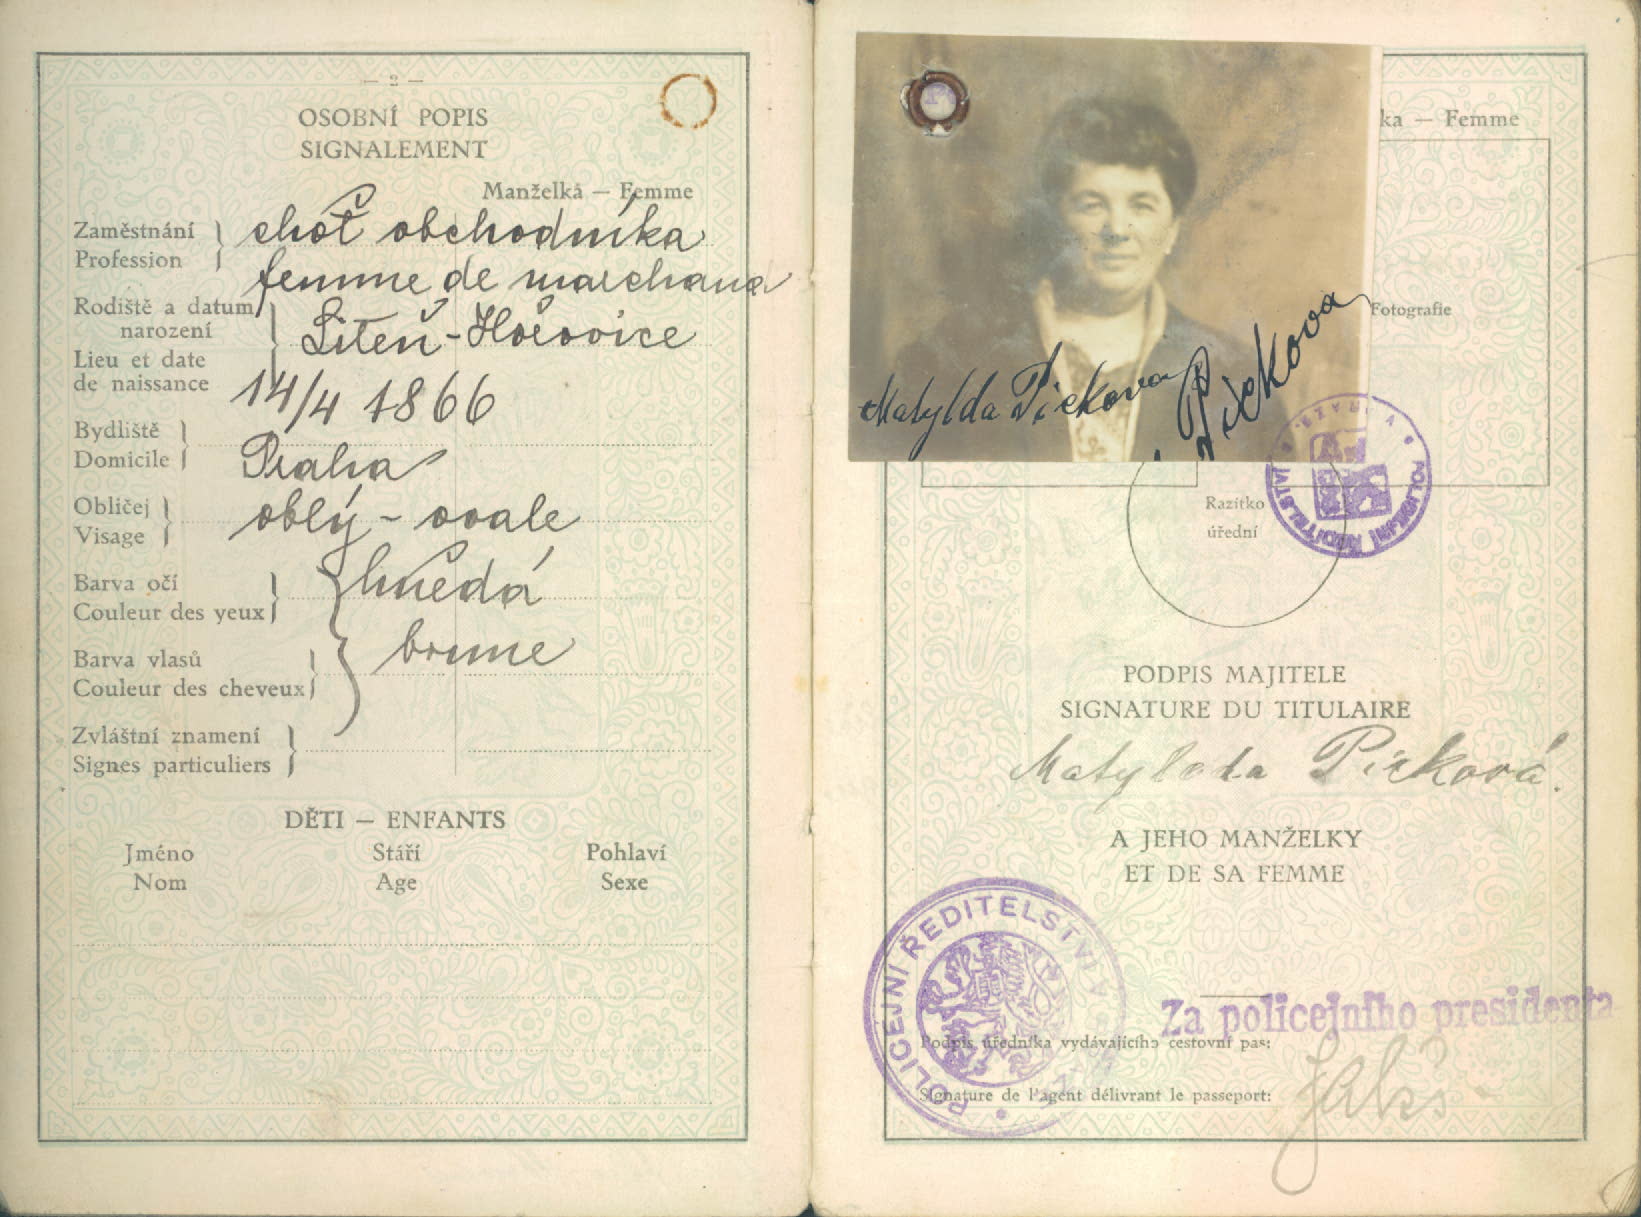 — 2 —
OSOBNÍ POPIS
SIGNALEMENT
Manželka — Femme
Zaměstnání
Profession
choť obchodníka
femme de marchand
Rodiště a datum
narození
Lieu et date
de naissance
Liteň - Hořovice
14/4 1866
Bydliště
Domicile
Praha
Obličej
Visage
oblý - ovale
Barva očí
Couleur des yeux
hnědá
Barva vlasů
Couleur des cheveux
brune
Zvláštní znamení
Signes particuliers
DĚTI — ENFANTS
Jméno Stáří Pohlaví
Nom Age Sexe
ka — Femme
Fotografie
Matylda Pickova
Pickova
Razítko
úřední
POLICEJNÍ ŘEDITELSTVÍ V PRAZE
PODPIS MAJITELE
SIGNATURE DU TITULAIRE
Matylda Picková.
A JEHO MANŽELKY
ET DE SA FEMME
POLICEJNÍ ŘEDITELSTVÍ V PRAZE
Za policejního presidenta
Podpis úředníka vydávajícího cestovní pas:
Signature de l'agent délivrant le passeport: